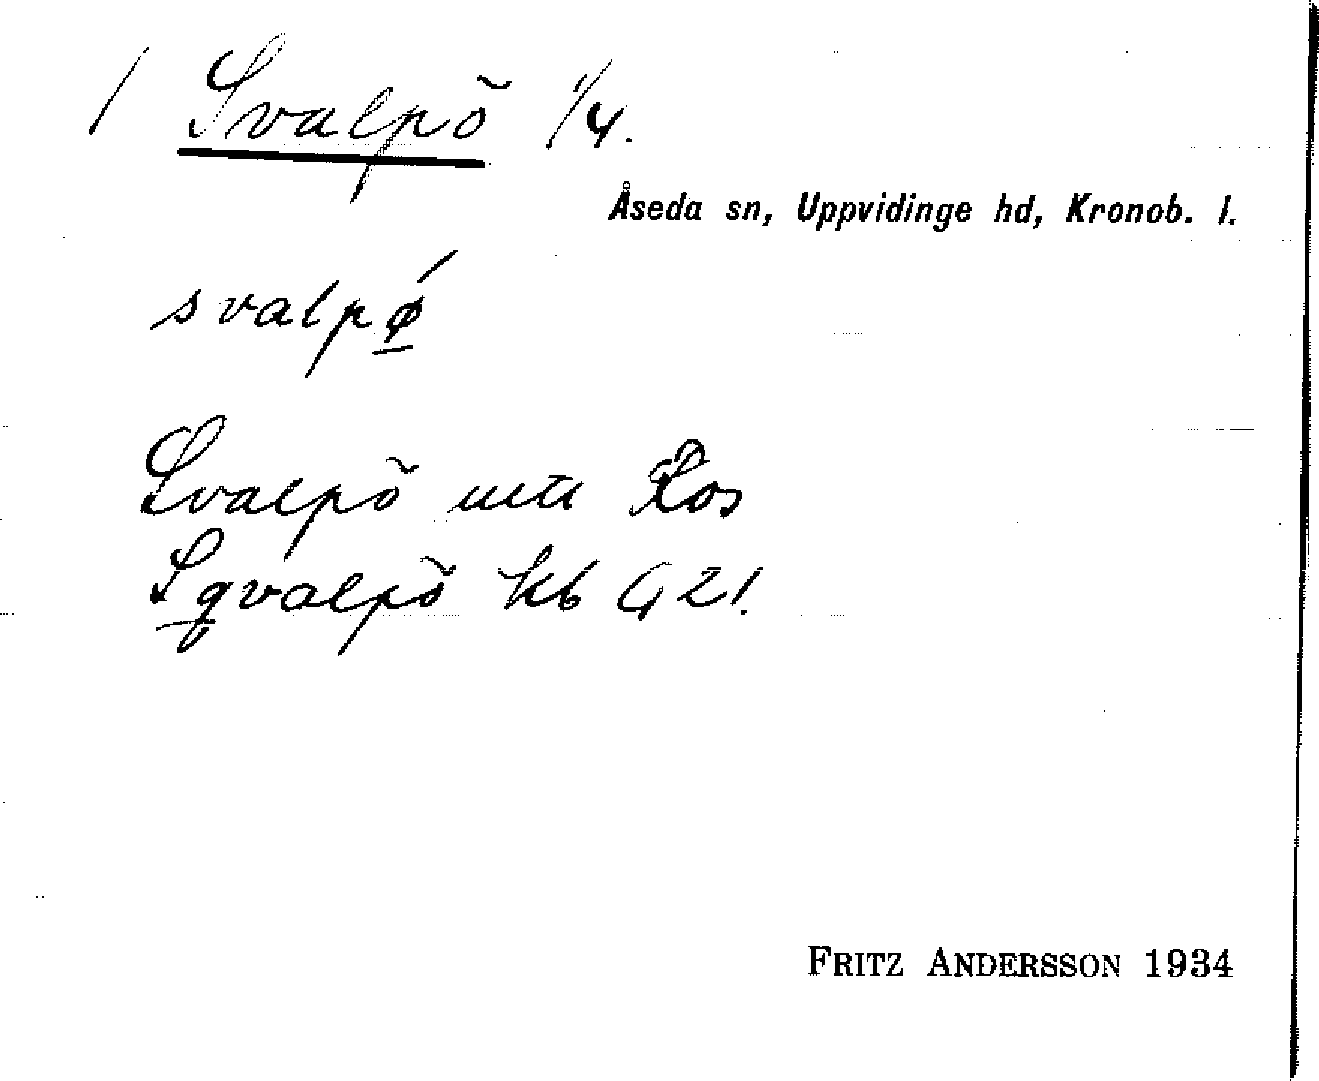 / Svalpö 1/4.
Åseda sn, Uppvidinge hd, Kronob. l.
svalpǿ
Svalpö
Sqvalpö kb G 21.
FRITZ ANDERSSON 1934